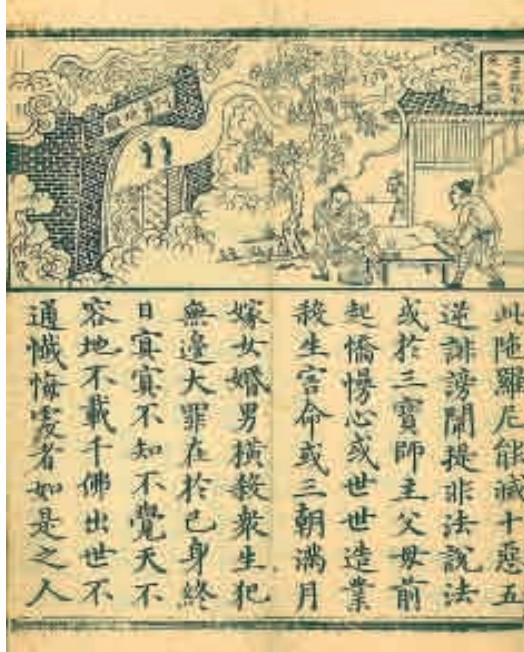 此陁羅尼能滅十惡五
逆誹謗闡提非法說法
或於三寶師主父母前
起憍慢心或世世造業
殺生害命或三朝滿月
嫁女婚男橫殺衆生犯
無邊大罪在於己身終
日冥冥不知不覺天不
容地不載千佛出世不
通懺悔處者如是之人